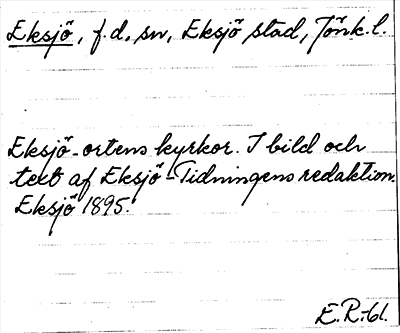 Eksjö, f.d. sn, Eksjö stad, Jönk.l.
Eksjö-ortens kyrkor. I bild och
text af Eksjö-Tidningens redaktion.
Eksjö 1895.
E.R.-61.